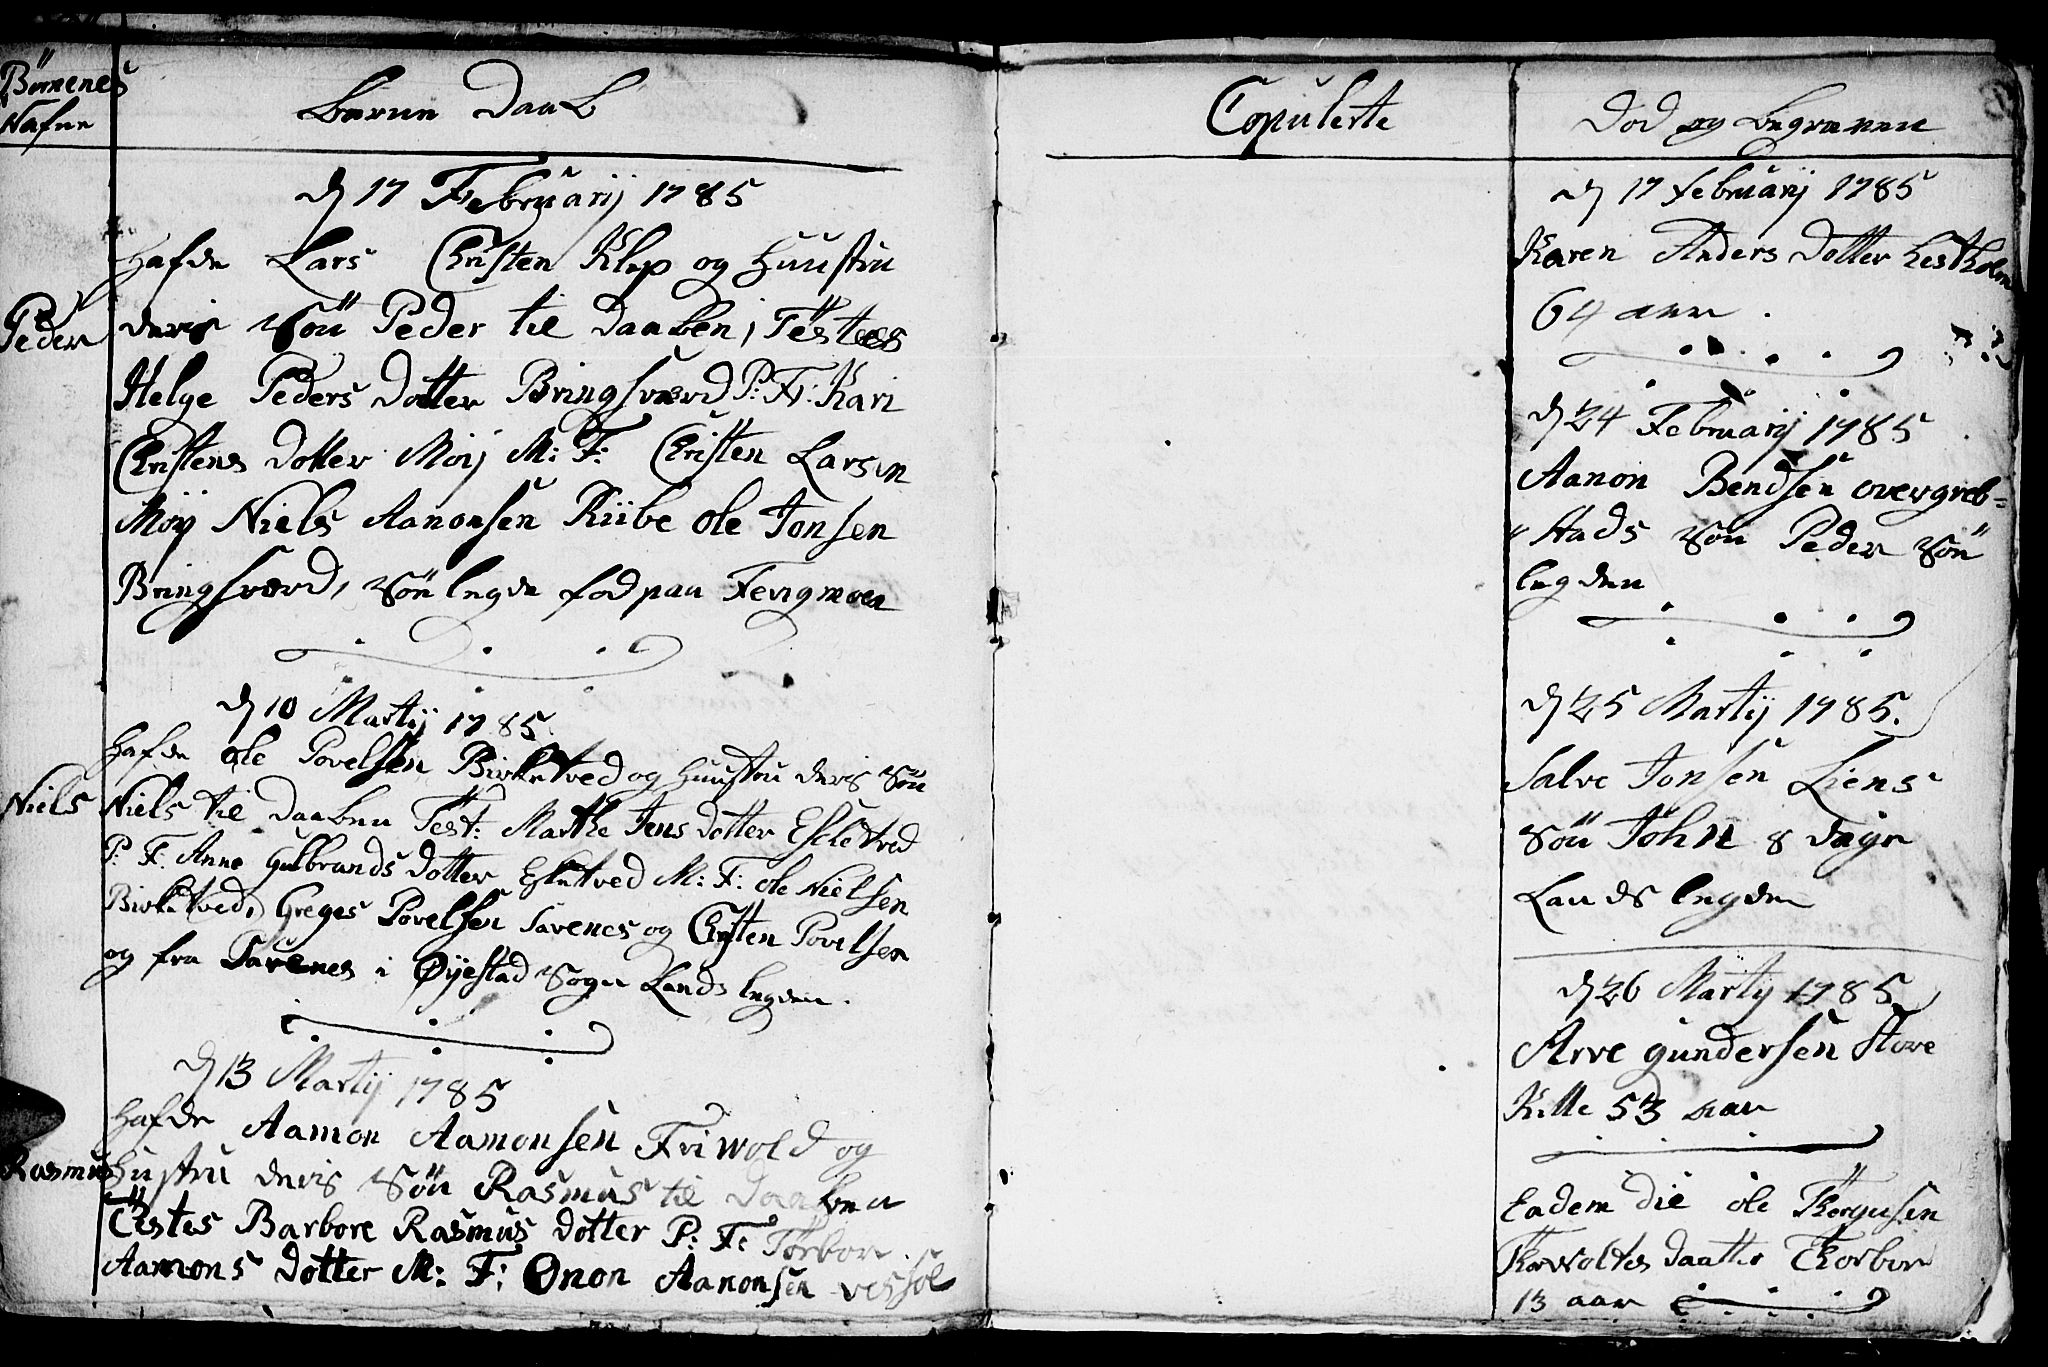 Börnenes
Nafne
Barne Daab
d 17 Februarij 1785
Hafde Lars Christen Klep og Huustru
Peder
deris Sön Peder til Daaben, Testes
Helge Peders Dotter Bringsværd P: F: Kari
Christens Dotter Möij M: F: Christen Larsen
Möij Niels Aanonsen Riibe Ole Jonsen
Bringsværd, Sön legde fod paa Fevigmoen
d 10 Martij 1785.
Hafde Ole Povelsen Birketved og Huustru deris Sön
Niels
Niels til Daaben Test: Marthe Jens Dotter Esketved
P: F: Anne Gulbrands Dotter Esketved M: F: Ole Nielsen
Birketved, Greges Povelsen Savenes og Christen Povelsen
og fra Savenes i Øyestad Sogn Lands legden.
d 13 Martij 1785
Hafde Aamon Aamonsen Friwold og
Rasmus
Hustru deris Sön Rasmus til Daaben
Testes Barbore Rasmus Dotter P: F: Torbor
Aamons Dotter M: F: Ønon Aanonsen Vessøe
Copulerte
Död og Begravene
d 17 Februarij 1785
Karen Anders Dotter Hestholm
64 aar.
d 24 Februarij 1785
Aanon Bendsen overgreb-
stads Sön Peder Sön
legden
d 25 Martij 1785.
Salve Jonsen Liens
Sön John 8 Dage
Lands legden
d 26 Martij 1785
Arve Gundersen Store
Kille 53 aar
Eadem Die Ole Thorgusen
Thorvoltes Daatter Thorbor
13 aar